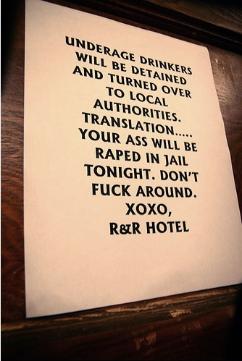 UNDERAGE DRINKERS
WILL BE DETAINED
AND TURNED OVER
TO LOCAL
AUTHORITIES.
TRANSLATION.....
YOUR ASS WILL BE
RAPED IN JAIL
TONIGHT. DON'T
FUCK AROUND.
XOXO,
R&R HOTEL